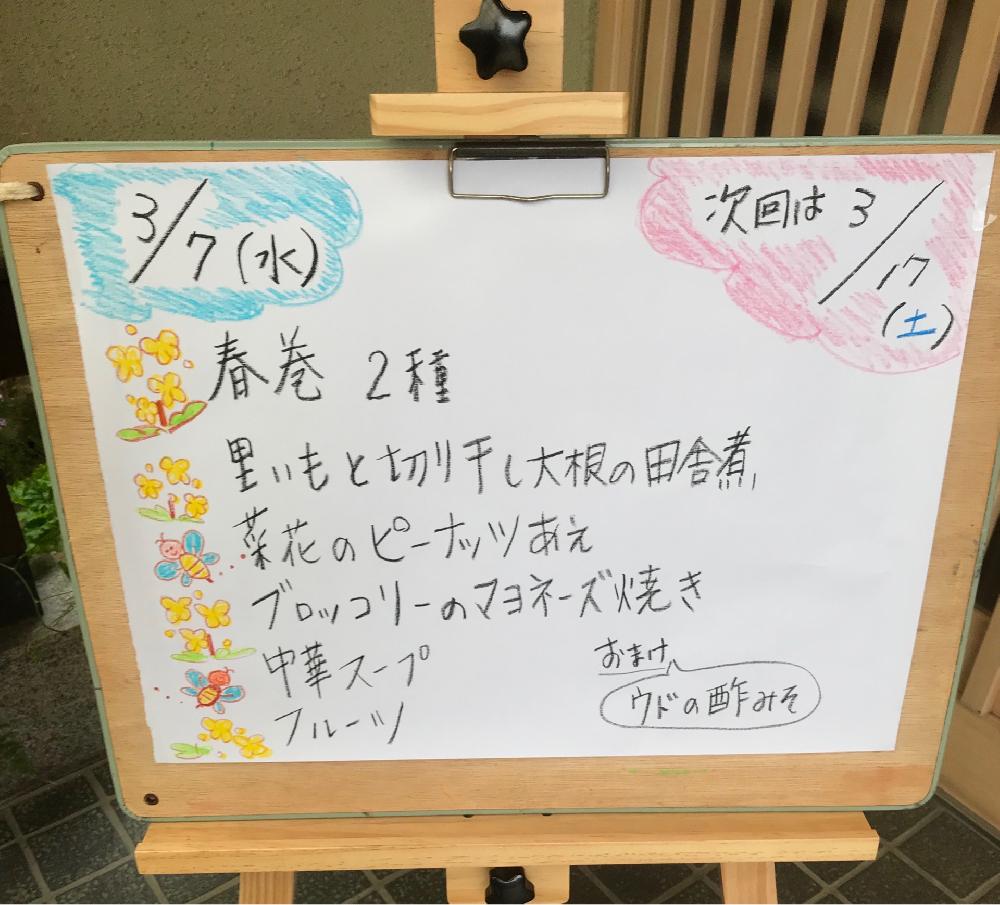 3/7(水)
次回は 3/17
(土)
春巻 2種
里いもと切り干し大根の田舎煮
菜花のピーナッツあえ
ブロッコリーのマヨネーズ焼き
中華スープ
フルーツ
おまけ
ウドの酢みそ